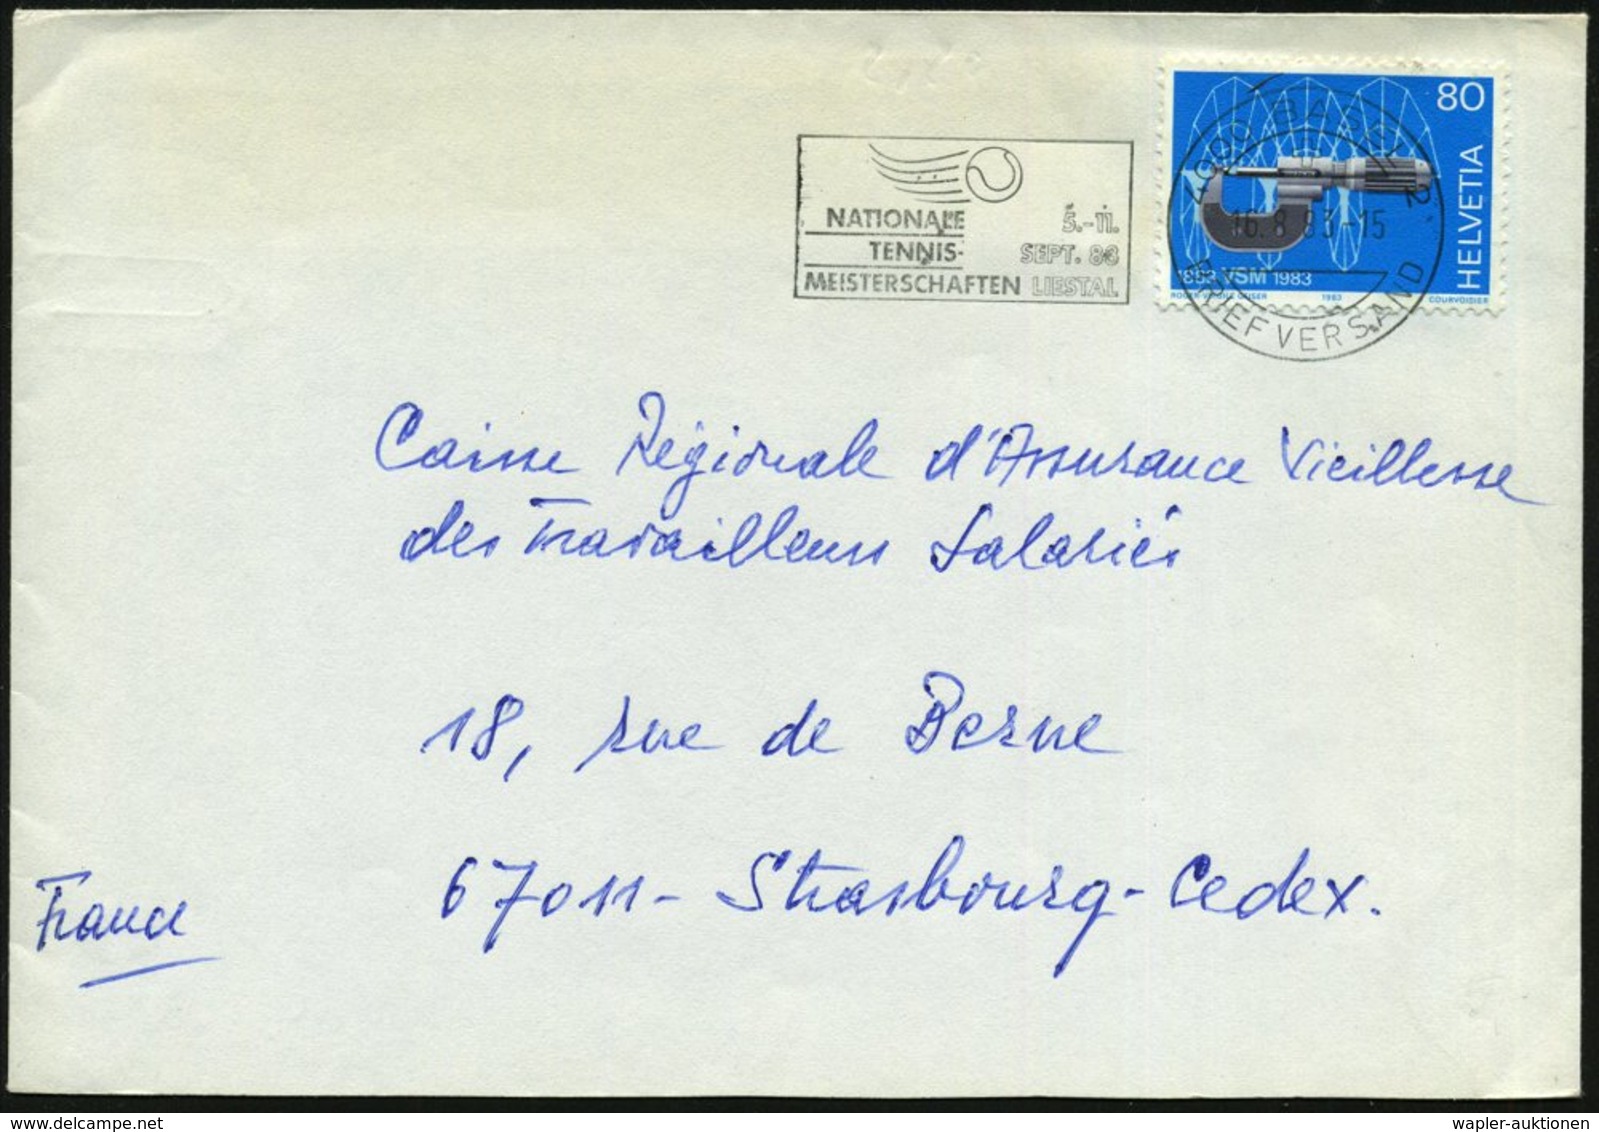 80
HELVETIA
1883 VSM 1983
1983
COURVOISIER
4000 BASEL 2
16.8.83-15
BRIEFVERSAND
NATIONALE
TENNIS-
MEISTERSCHAFTEN
5.-11.
SEPT. 83
LIESTAL
Caisse Régionale d'Assurance Vieillesse
des Travailleurs Salariés
18, rue de Berne
67011-Strasbourg-Cedex.
France
wapler-auktionen